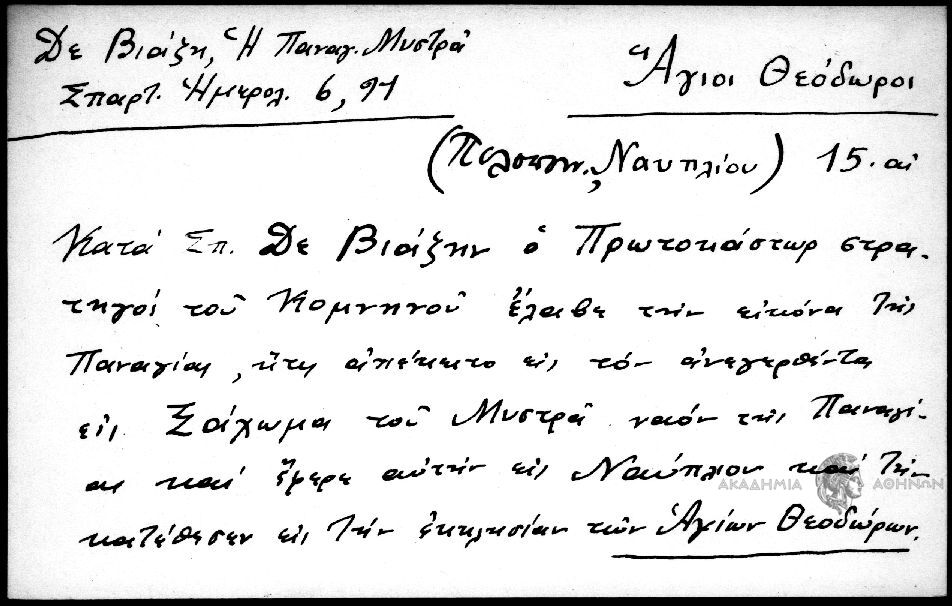 Δε Βιάζη, Ἡ Παναγ. Μυστρᾶ
Σπαρτ. Ἡμερολ. 6, 91
Ἅγιοι Θεόδωροι
(Πελοπον., Ναυπλίου) 15. αἰ
Κατά Σπ. Δε Βιάζην ὁ Πρωτοκάστωρ στρα-
τηγός τοῦ Κομνηνοῦ ἔλαβε τήν εἰκόνα τῆς
Παναγίας, ἥτις ἀπέκειτο εἰς τόν ἀνεγερθέντα
εἰς Ξάχωμα τοῦ Μυστρᾶ ναόν τῆς Παναγί-
ας καί ἔφερε αὐτήν εἰς Ναύπλιον καί τήν
κατέθεσεν εἰς τήν ἐκκλησίαν τῶν Ἁγίων Θεοδώρων.
ΑΚΑΔΗΜΙΑ ΑΘΗΝΩΝ